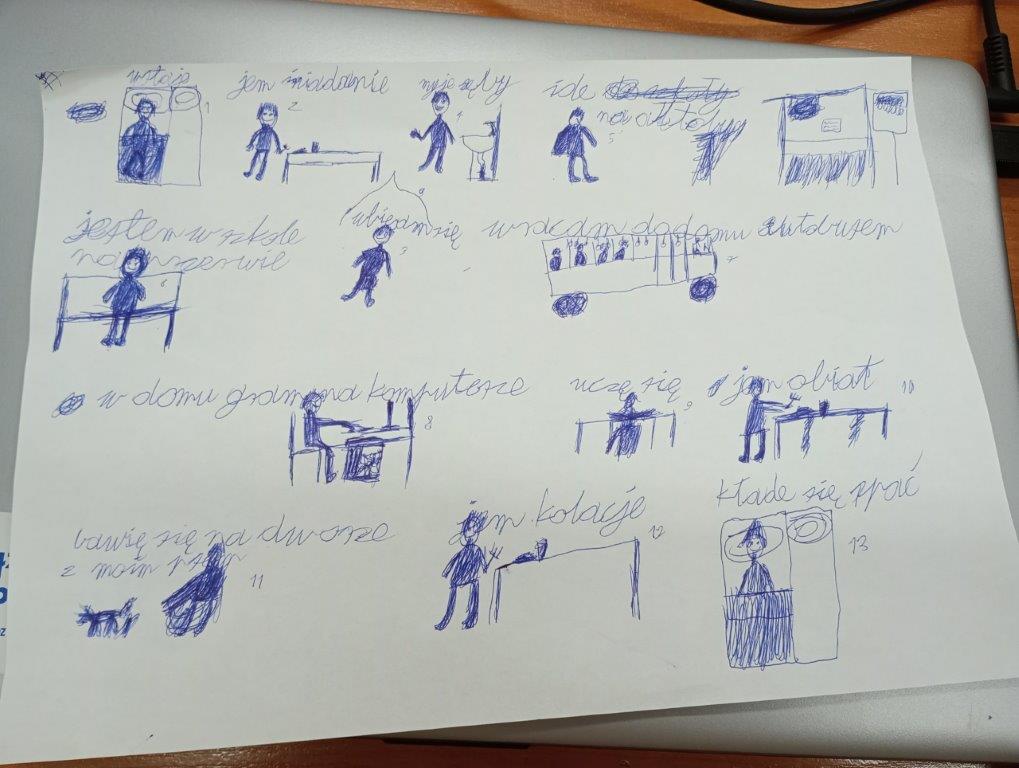 wstaje
1
jem śniadanie
2
myje zęby
4
ide do szkoły
na autobus
5
jestem w szkole
na przerwie
6
ubieram się
3
wracam do domu autobusem
7
w domu gram na komputerze
8
uczę się
9
jem obiat
10
bawię się na dworze
z moim psem
11
jem kolacje
12
kłade się spać
13